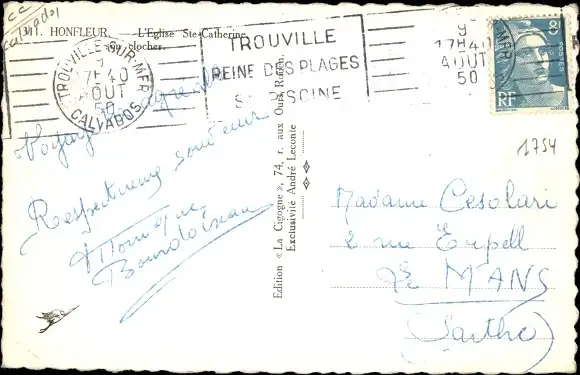 CC
Calvados
311. HONFLEUR. — L'Eglise Ste-Catherine
son clocher.
TROUVILLE-SUR-MER
9
17H40
AOUT
50
CALVADOS
TROUVILLE
REINE DES PLAGES
SA PISCINE
9
17H40
AOUT
50
8F
RF
1754
Voyage
Respectueux souvenir
Monique
Bourdoiseau
Edition « La Cigogne », 74, r. aux Ours, Rouen
Exclusivité André Leconte
Madame Cesolari
2 rue Erpell
Le MANS
(Sarthe)